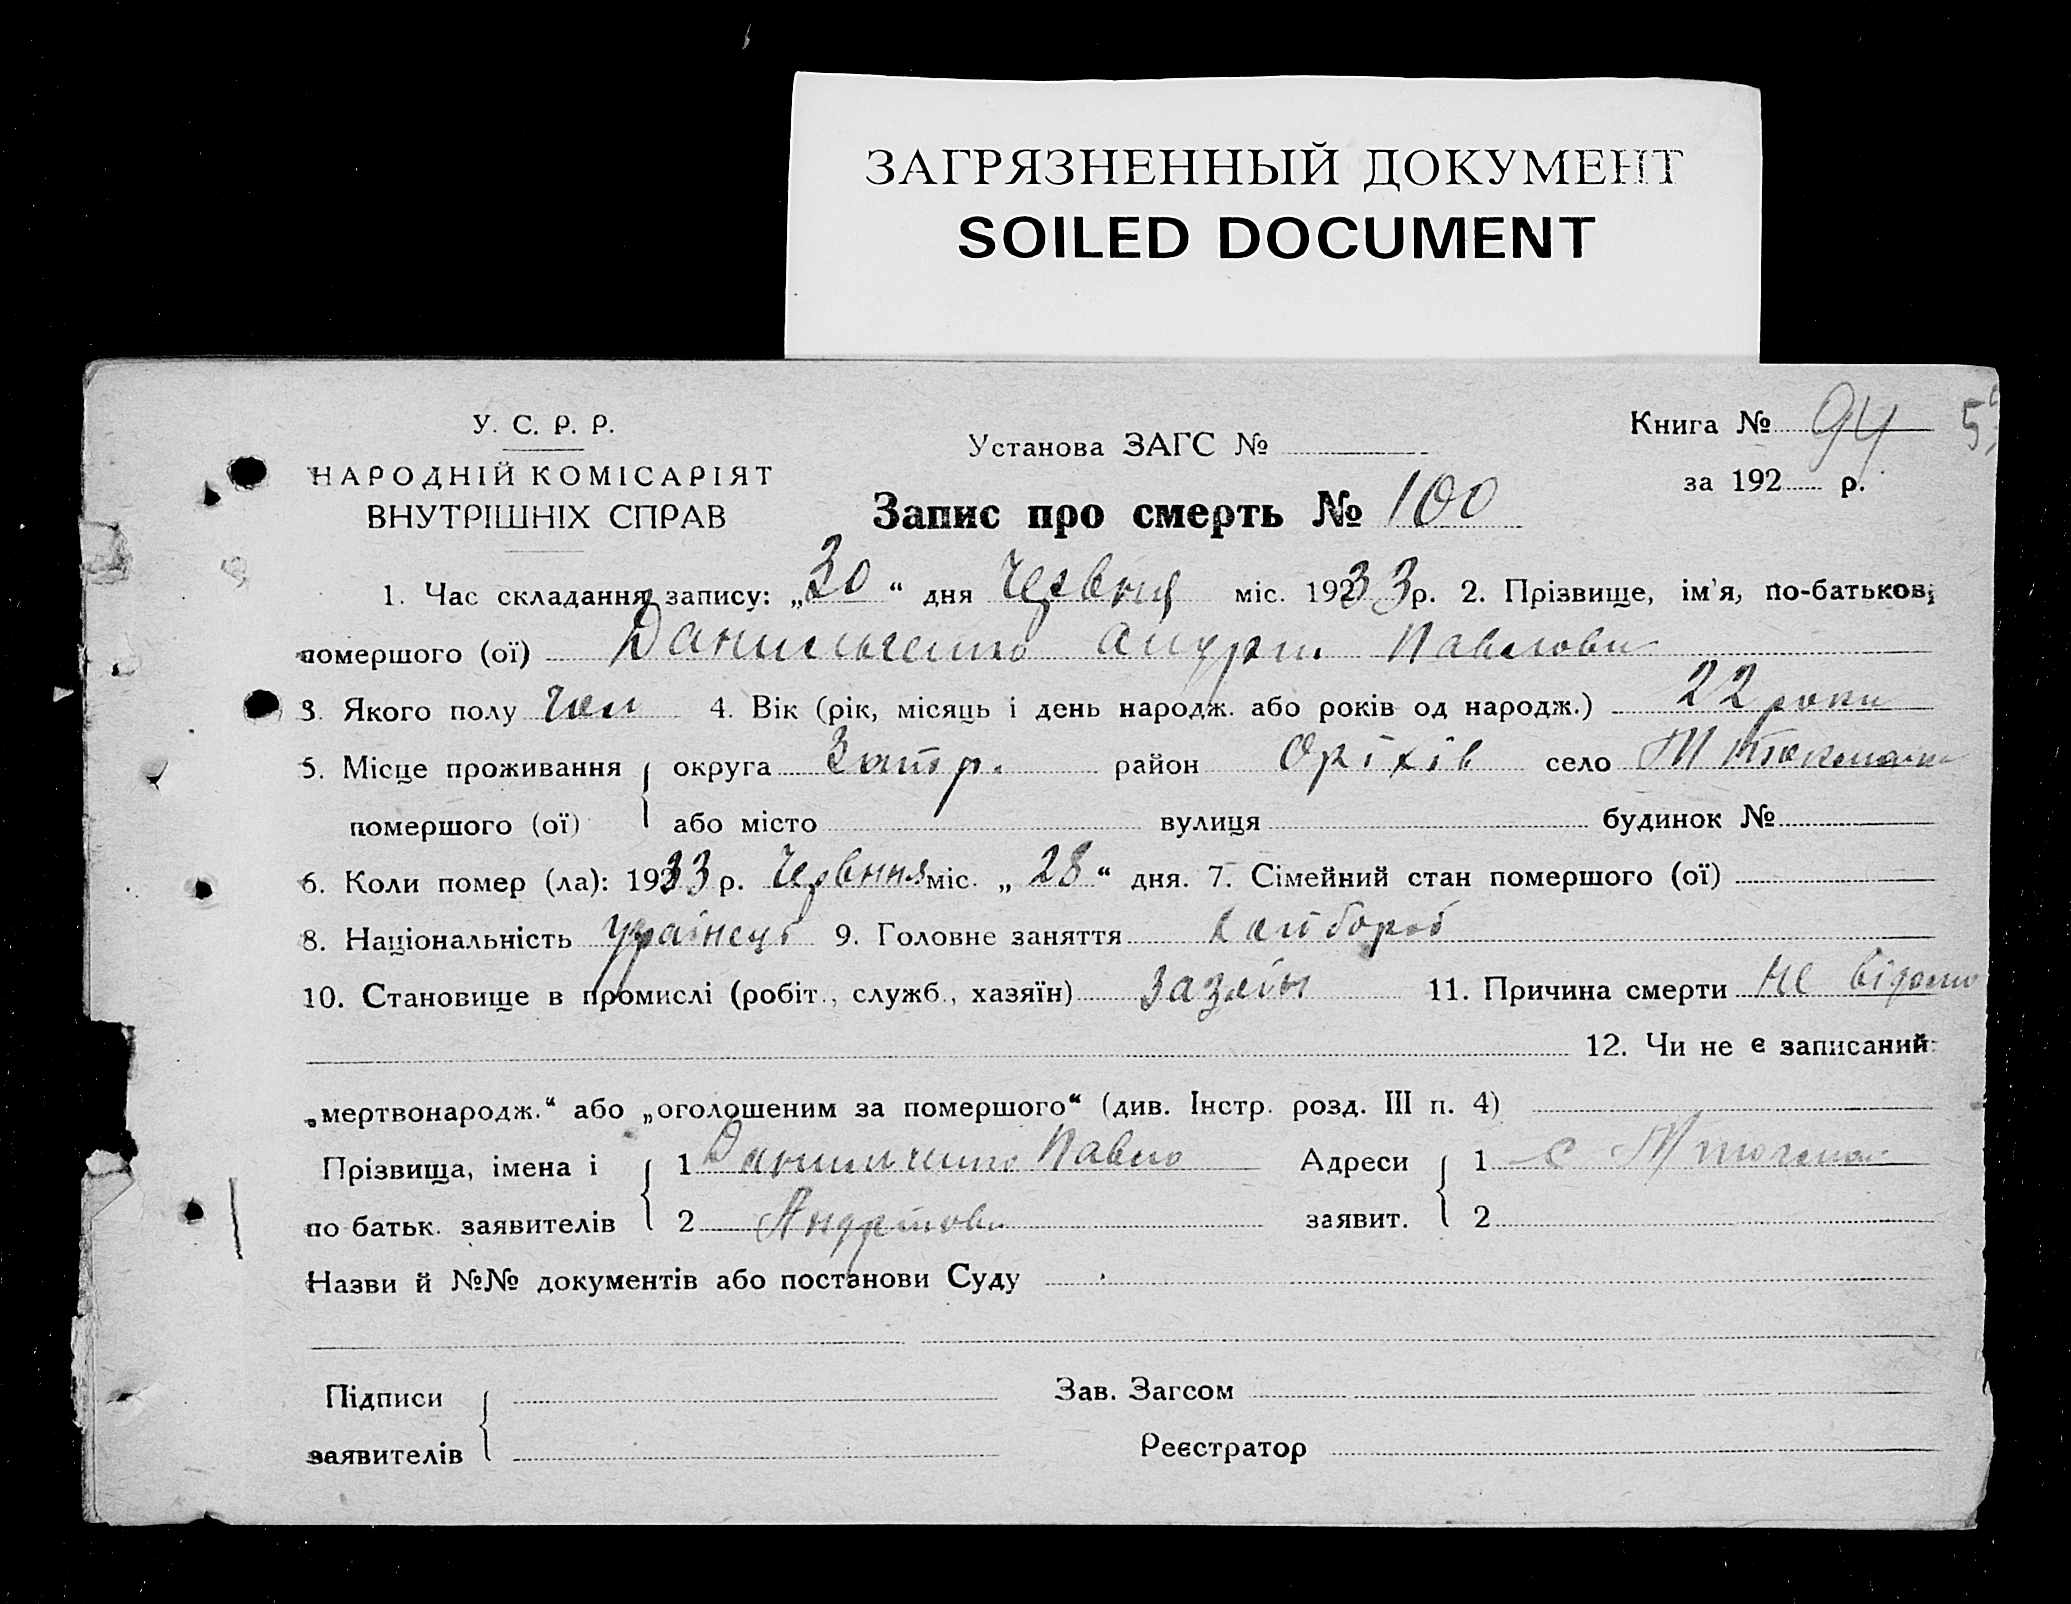 ЗАГРЯЗНЕННЫЙ ДОКУМЕНТ
SOILED DOCUMENT
У. С. Р. Р.
НАРОДНІЙ КОМІСАРІЯТ
ВНУТРІШНІХ СПРАВ
Установа ЗАГС №
Книга № 94
за 192 р.
Запис про смерть № 100
1. Час складання запису: „30“ дня Червня міс. 1933 р. 2. Прізвище, ім'я, по-батькові
помершого (ої) Данильченко Андрій Павлови
3. Якого полу чол 4. Вік (рік, місяць і день народж. або років од народж.) 22 роки
5. Місце проживання округа Запор. район Оріхів село
помершого (ої) або місто вулиця будинок №
6. Коли помер (ла): 1933 р. Червння міс. „28“ дня. 7. Сімейний стан помершого (ої)
8. Національність 9. Головне заняття хлібороб
10. Становище в промислі (робіт., служб., хазяїн) 11. Причина смерти не відомо
12. Чи не є записаний:
„мертвонародж.“ або „оголошеним за помершого“ (див. Інстр. розд. III п. 4)
Прізвища, імена і 1 Данильченко Павло Адреси 1 с
по батьк. заявителів 2 заявит. 2
Назви й №№ документів або постанови Суду
Підписи Зав. Загсом
заявителів Реєстратор